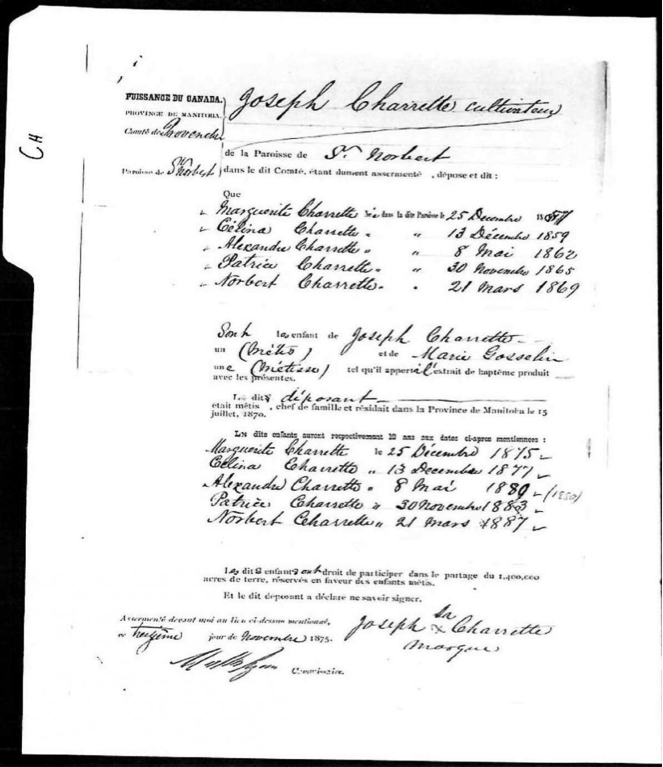 CH
PUISSANCE DU CANADA.
PROVINCE DE MANITOBA.
Comté de Provencher
Paroisse de St Norbert
Joseph Charrette cultivateur
de la Paroisse de St. Norbert
dans le dit Comté, étant dument assermenté, dépose et dit :
Que
Marguerite Charrette Née dans la dite Paroisse le 25 Decembre
Célina Charrette " " 13 Décembre 1859
Alexandre Charrette " " 8 Mai 1862
Patrice Charrette " " 30 Novembre 1865
Norbert Charrette " " 21 Mars 1869
Sont les enfant de Joseph Charrette
un (Métis) et de Marie Gosselin
une (Métisse) tel qu'il appert à l'extrait de baptême produit
avec les présentes.
Le dit déposant
était métis, chef de famille et résidait dans la Province de Manitoba le 15
juillet, 1870.
Les dits enfants auront respectivement ans aux dates ci-apres mentionnees :
Marguerite Charrette le 25 Décembre 1875
Célina Charrette " 13 Decembre 1877
Alexandre Charrette " 8 Mai 1880 (1880)
Patrice Charrette " 30 Novembre 1883
Norbert Charrette " 21 Mars 1887
Les dits enfants ont droit de participer dans le partage du 1,400,000
acres de terre, réservés en faveur des enfants métis.
Et le dit deposant a déclaré ne savoir signer.
Assermenté devant moi au lieu ci-dessus mentionné,
ce treizième jour de Novembre 1875.
Joseph sa x Charrette
marque
Commissaire.